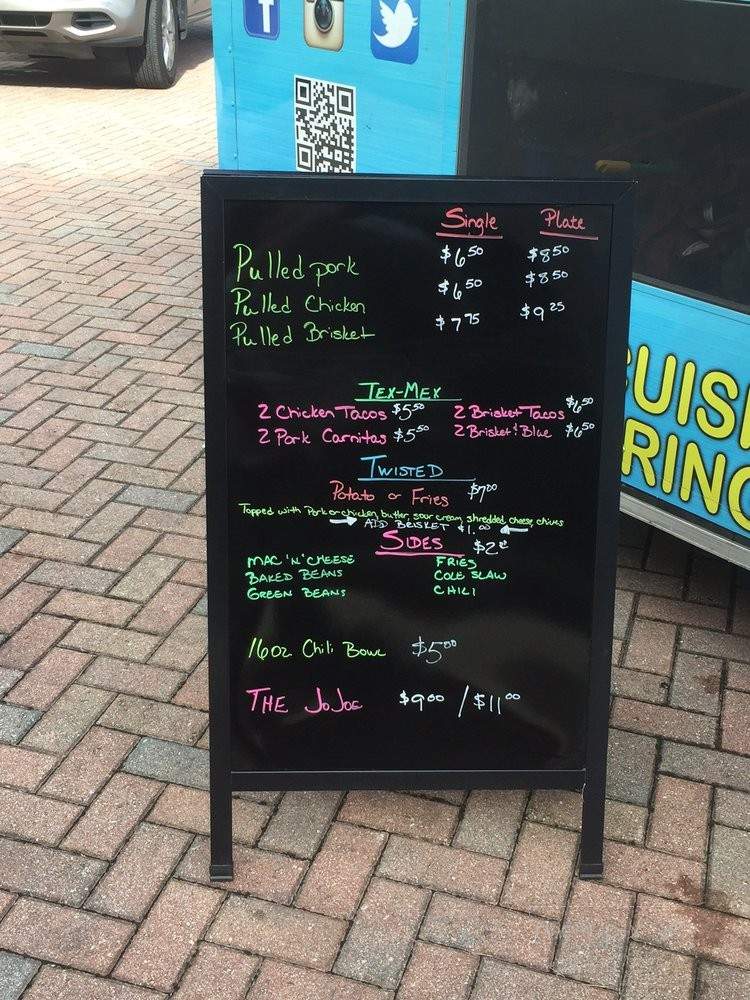 Single Plate
Pulled pork $6.50 $8.50
Pulled Chicken $6.50 $8.50
Pulled Brisket $7.75 $9.25
TEX-MEX
2 Chicken Tacos $5.50 2 Brisket Tacos $6.50
2 Pork Carnitas $5.50 2 Brisket & Blue $6.50
TWISTED
Potato or Fries $7.00
Topped with Pork or chicken, butter, sour cream, shredded cheese, chives
ADD BRISKET $1.00
SIDES $2
MAC 'N' CHEESE FRIES
BAKED BEANS COLE SLAW
GREEN BEANS CHILI
16oz Chili Bowl $5.00
THE JOJOE $9.00 / $11.00
UIS
RING